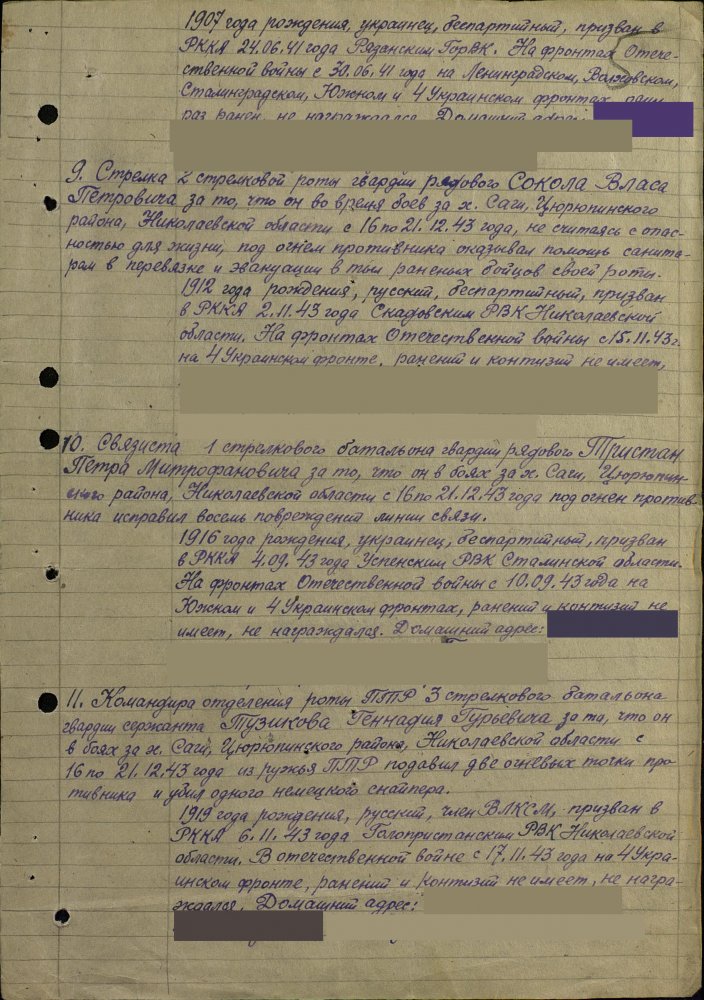 1907 года рождения, украинец, беспартийный, призван в
РККА 24.06.41 года Рязанским ГорВК. На фронтах Отече-
ственной войны с 30.06.41 года на Ленинградском, Волховском,
Сталинградском, Южном и 4 Украинском фронтах, один
раз ранен, не награждался. Домашний адрес:
9. Стрелка 2 стрелковой роты гвардии рядового СОКОЛА Власа
Петровича за то, что он во время боев за х. Саги, Цюрюпинского
района, Николаевской области с 16 по 21.12.43 года, не считаясь с опас-
ностью для жизни, под огнем противника оказывал помощь санита-
рам в перевязке и эвакуации в тыл раненых бойцов своей роты.
1912 года рождения, русский, беспартийный, призван
в РККА 2.11.43 года Скадовским РВК Николаевской
области. На фронтах Отечественной войны с 15.11.43 г.
на 4 Украинском фронте, ранений и контузий не имеет,
10. Связиста 1 стрелкового батальона гвардии рядового Тристан
Петра Митрофановича за то, что он в боях за х. Саги, Цюрюпин-
ского района, Николаевской области с 16 по 21.12.43 года под огнем против-
ника исправил восемь повреждений линии связи.
1916 года рождения, украинец, беспартийный, призван
в РККА 4.09.43 года Успенским РВК Сталинской области.
На фронтах Отечественной войны с 10.09.43 года на
Южном и 4 Украинском фронтах, ранений и контузий не
имеет, не награждался. Домашний адрес:
11. Командира отделения роты ПТР 3 стрелкового батальона
гвардии сержанта Тузикова Геннадия Гурьевича за то, что он
в боях за х. Саги, Цюрюпинского района, Николаевской области с
16 по 21.12.43 года из ружья ПТР подавил две огневых точки про-
тивника и убил одного немецкого снайпера.
1919 года рождения, русский, член ВЛКСМ, призван в
РККА 6.11.43 года Голопристанским РВК Николаевской
области. В отечественной войне с 17.11.43 года на 4 Укра-
инском фронте, ранений и контузий не имеет, не награ-
ждался. Домашний адрес: